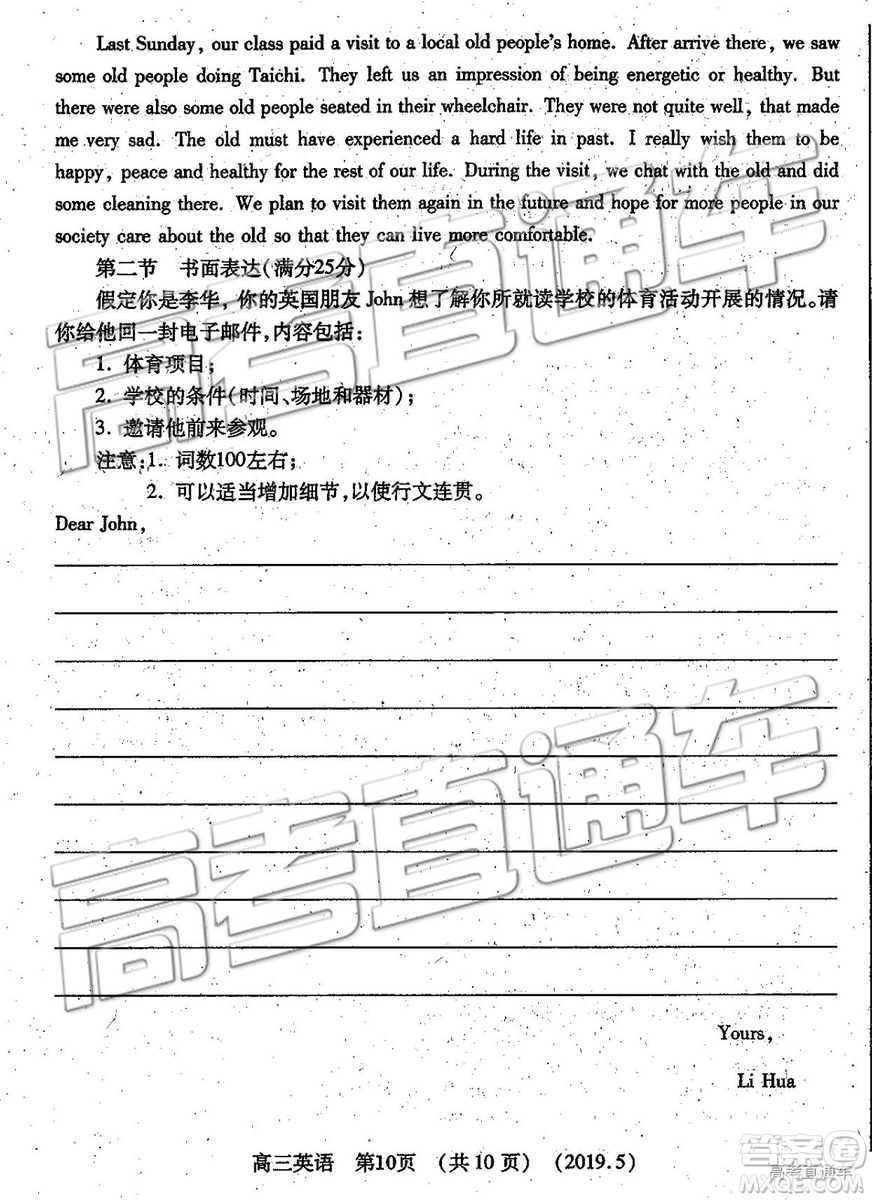 Last Sunday, our class paid a visit to a local old people's home. After arrive there, we saw
some old people doing Taichi. They left us an impression of being energetic or healthy. But
there were also some old people seated in their wheelchair. They were not quite well, that made
me very sad. The old must have experienced a hard life in past. I really wish them to be
happy, peace and healthy for the rest of our life. During the visit, we chat with the old and did
some cleaning there. We plan to visit them again in the future and hope for more people in our
society care about the old so that they can live more comfortable.
第二节 书面表达(满分25分)
假定你是李华,你的英国朋友John想了解你所就读学校的体育活动开展的情况。请
你给他回一封电子邮件,内容包括:
1. 体育项目;
2. 学校的条件(时间、场地和器材);
3. 邀请他前来参观。
注意:1. 词数100左右;
2. 可以适当增加细节,以使行文连贯。
Dear John,
Yours,
Li Hua
高三英语 第10页 (共10页) (2019.5)
高考直通车
高考直通车
答案圈
高考直通车
MXQE.COM